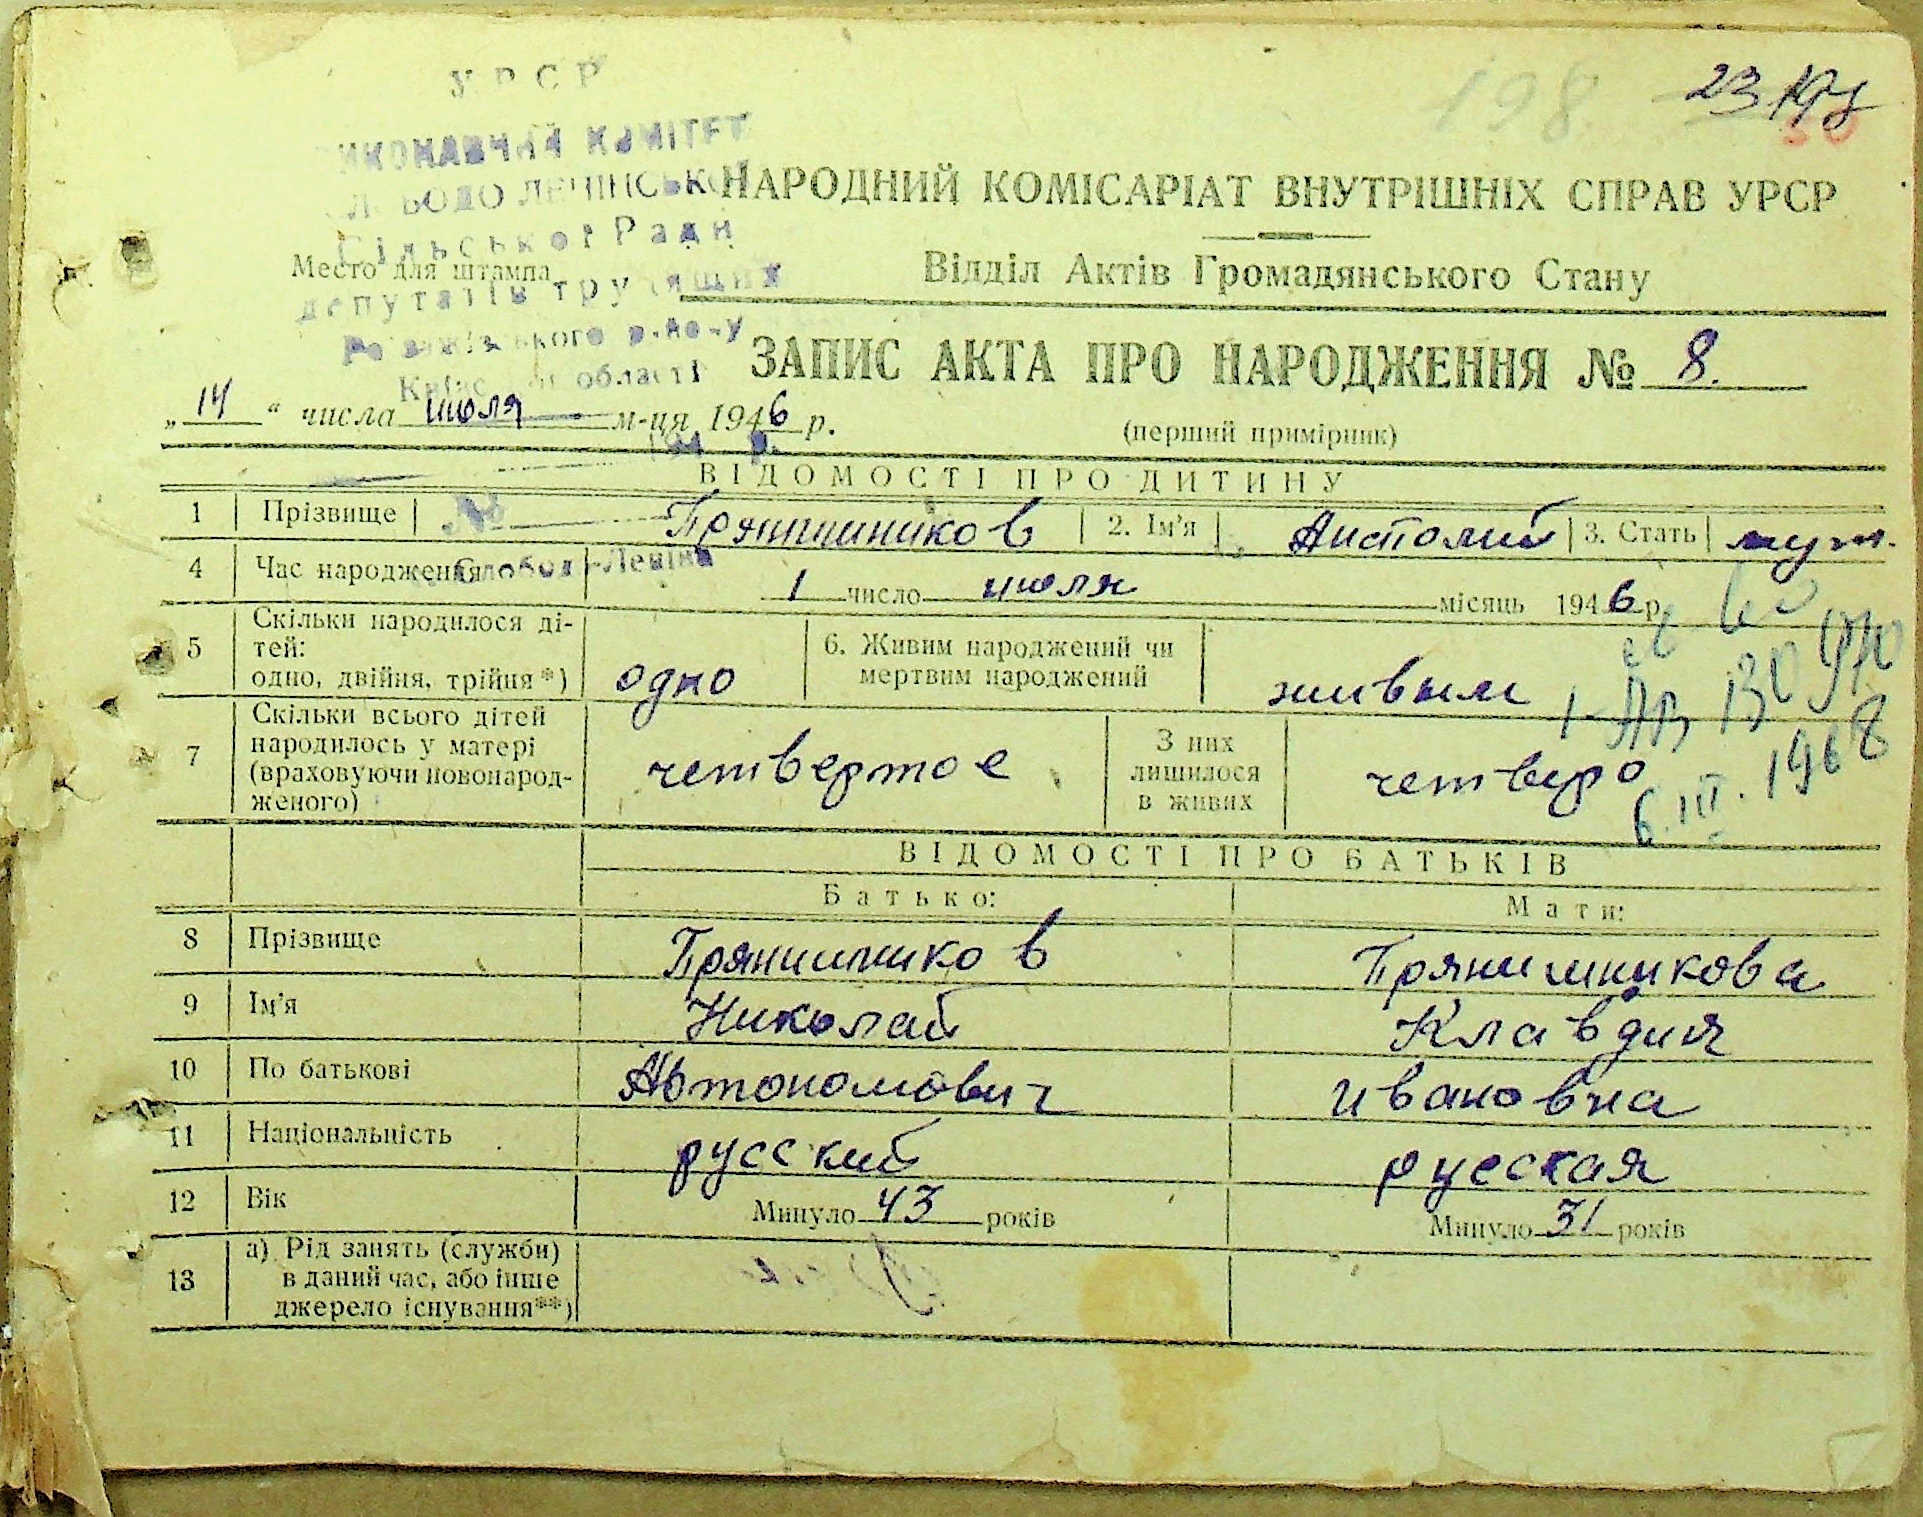 198 23
УРСР
ВИКОНАВЧИЙ КОМІТЕТ
НАРОДНИЙ КОМІСАРІАТ ВНУТРІШНІХ СПРАВ УРСР
Сільської Ради
Место для штампа
Відділ Актів Громадянського Стану
депутатів трудящих
р-но-у
області
ЗАПИС АКТА ПРО НАРОДЖЕННЯ № 8.
„14“ числа июля м-ця 1946 р.
(перший примірник)
194 р.
ВІДОМОСТІ ПРО ДИТИНУ
1 Прізвище Прянишников 2. Ім'я Анатолий 3. Стать муж.
№
Слобода-Леніна
4 Час народження 1 число июля місяць 1946 р.
5 Скільки народилося ді-
тей:
одно, двійня, трійня*) одно 6. Живим народжений чи
мертвим народжений живым
7 Скільки всього дітей
народилось у матері
(враховуючи новонарод-
женого) четвертое З них
лишилося
в живих четверо
6.III.1968
ВІДОМОСТІ ПРО БАТЬКІВ
Батько: Мати:
8 Прізвище Прянишников Прянишникова
9 Ім'я Николай Клавдия
10 По батькові Автономович Ивановна
11 Національність русский русская
12 Вік Минуло 43 років Минуло 31 років
13 а) Рід занять (служби)
в даний час, або інше
джерело існування**)